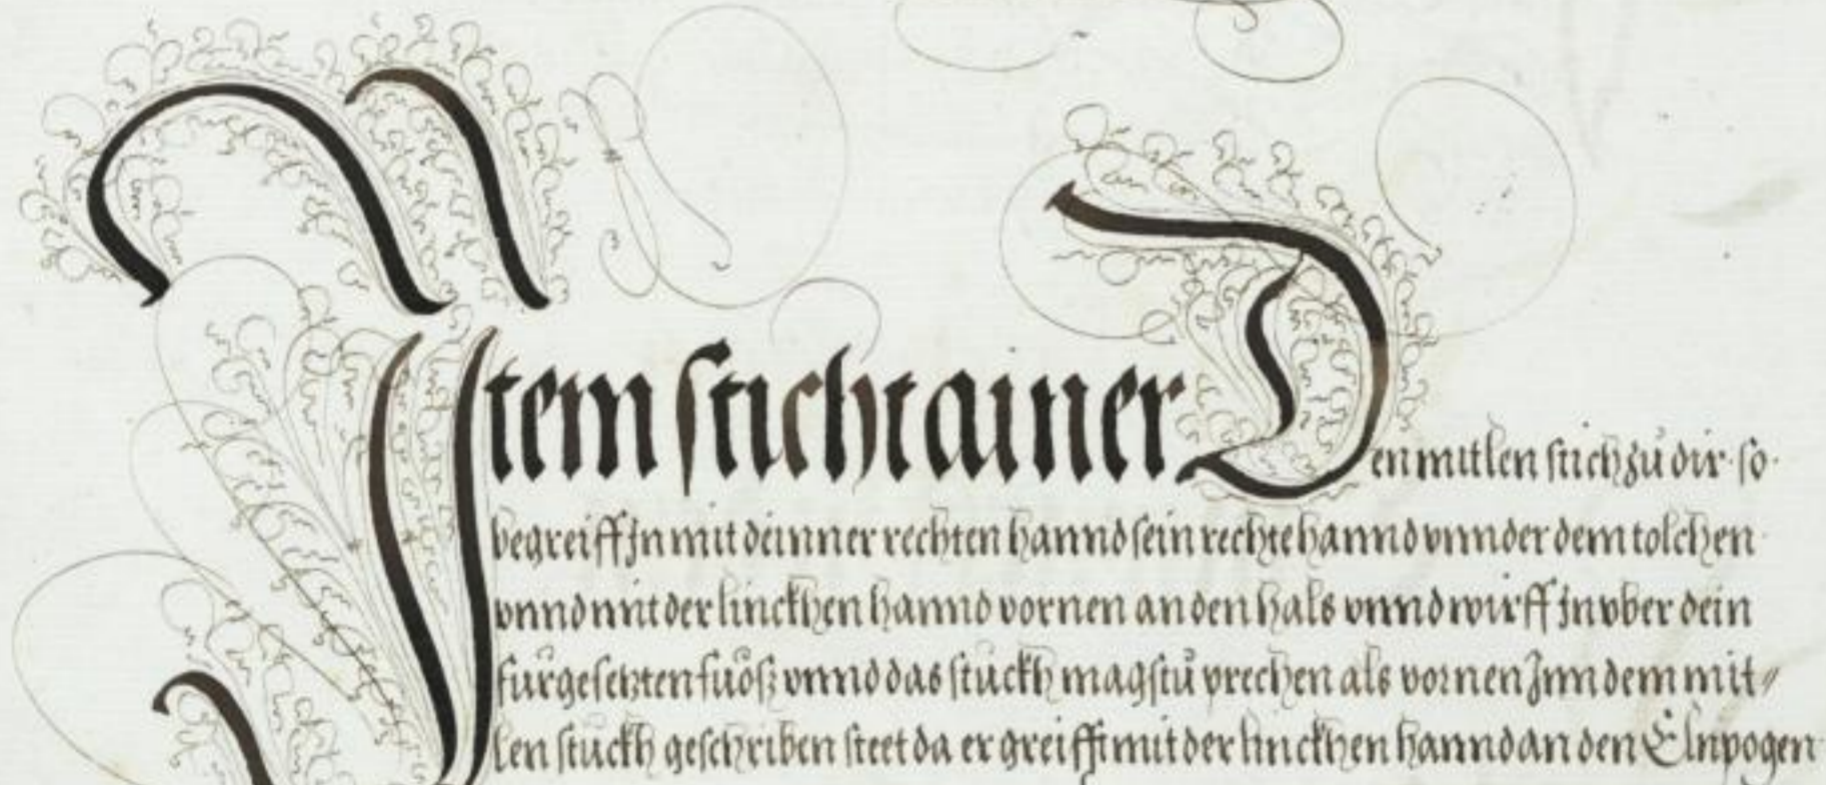 Item sticht ainer Den mitlen stich zů dir · so ·
begreiff Jn mit deinner rechten hannd sein rechte hannd vnnder dem tolchen
vnnd mit der linckhen hannd vornen an den hals vnnd wirff Jn vber dein
fürgesetzten fůösz vnnd das stuckh magstu prechen als vornen Jnn dem mit⸗
len stuckh geschriben steet da er greifft mit der linckhen hannd an den Elnpogen